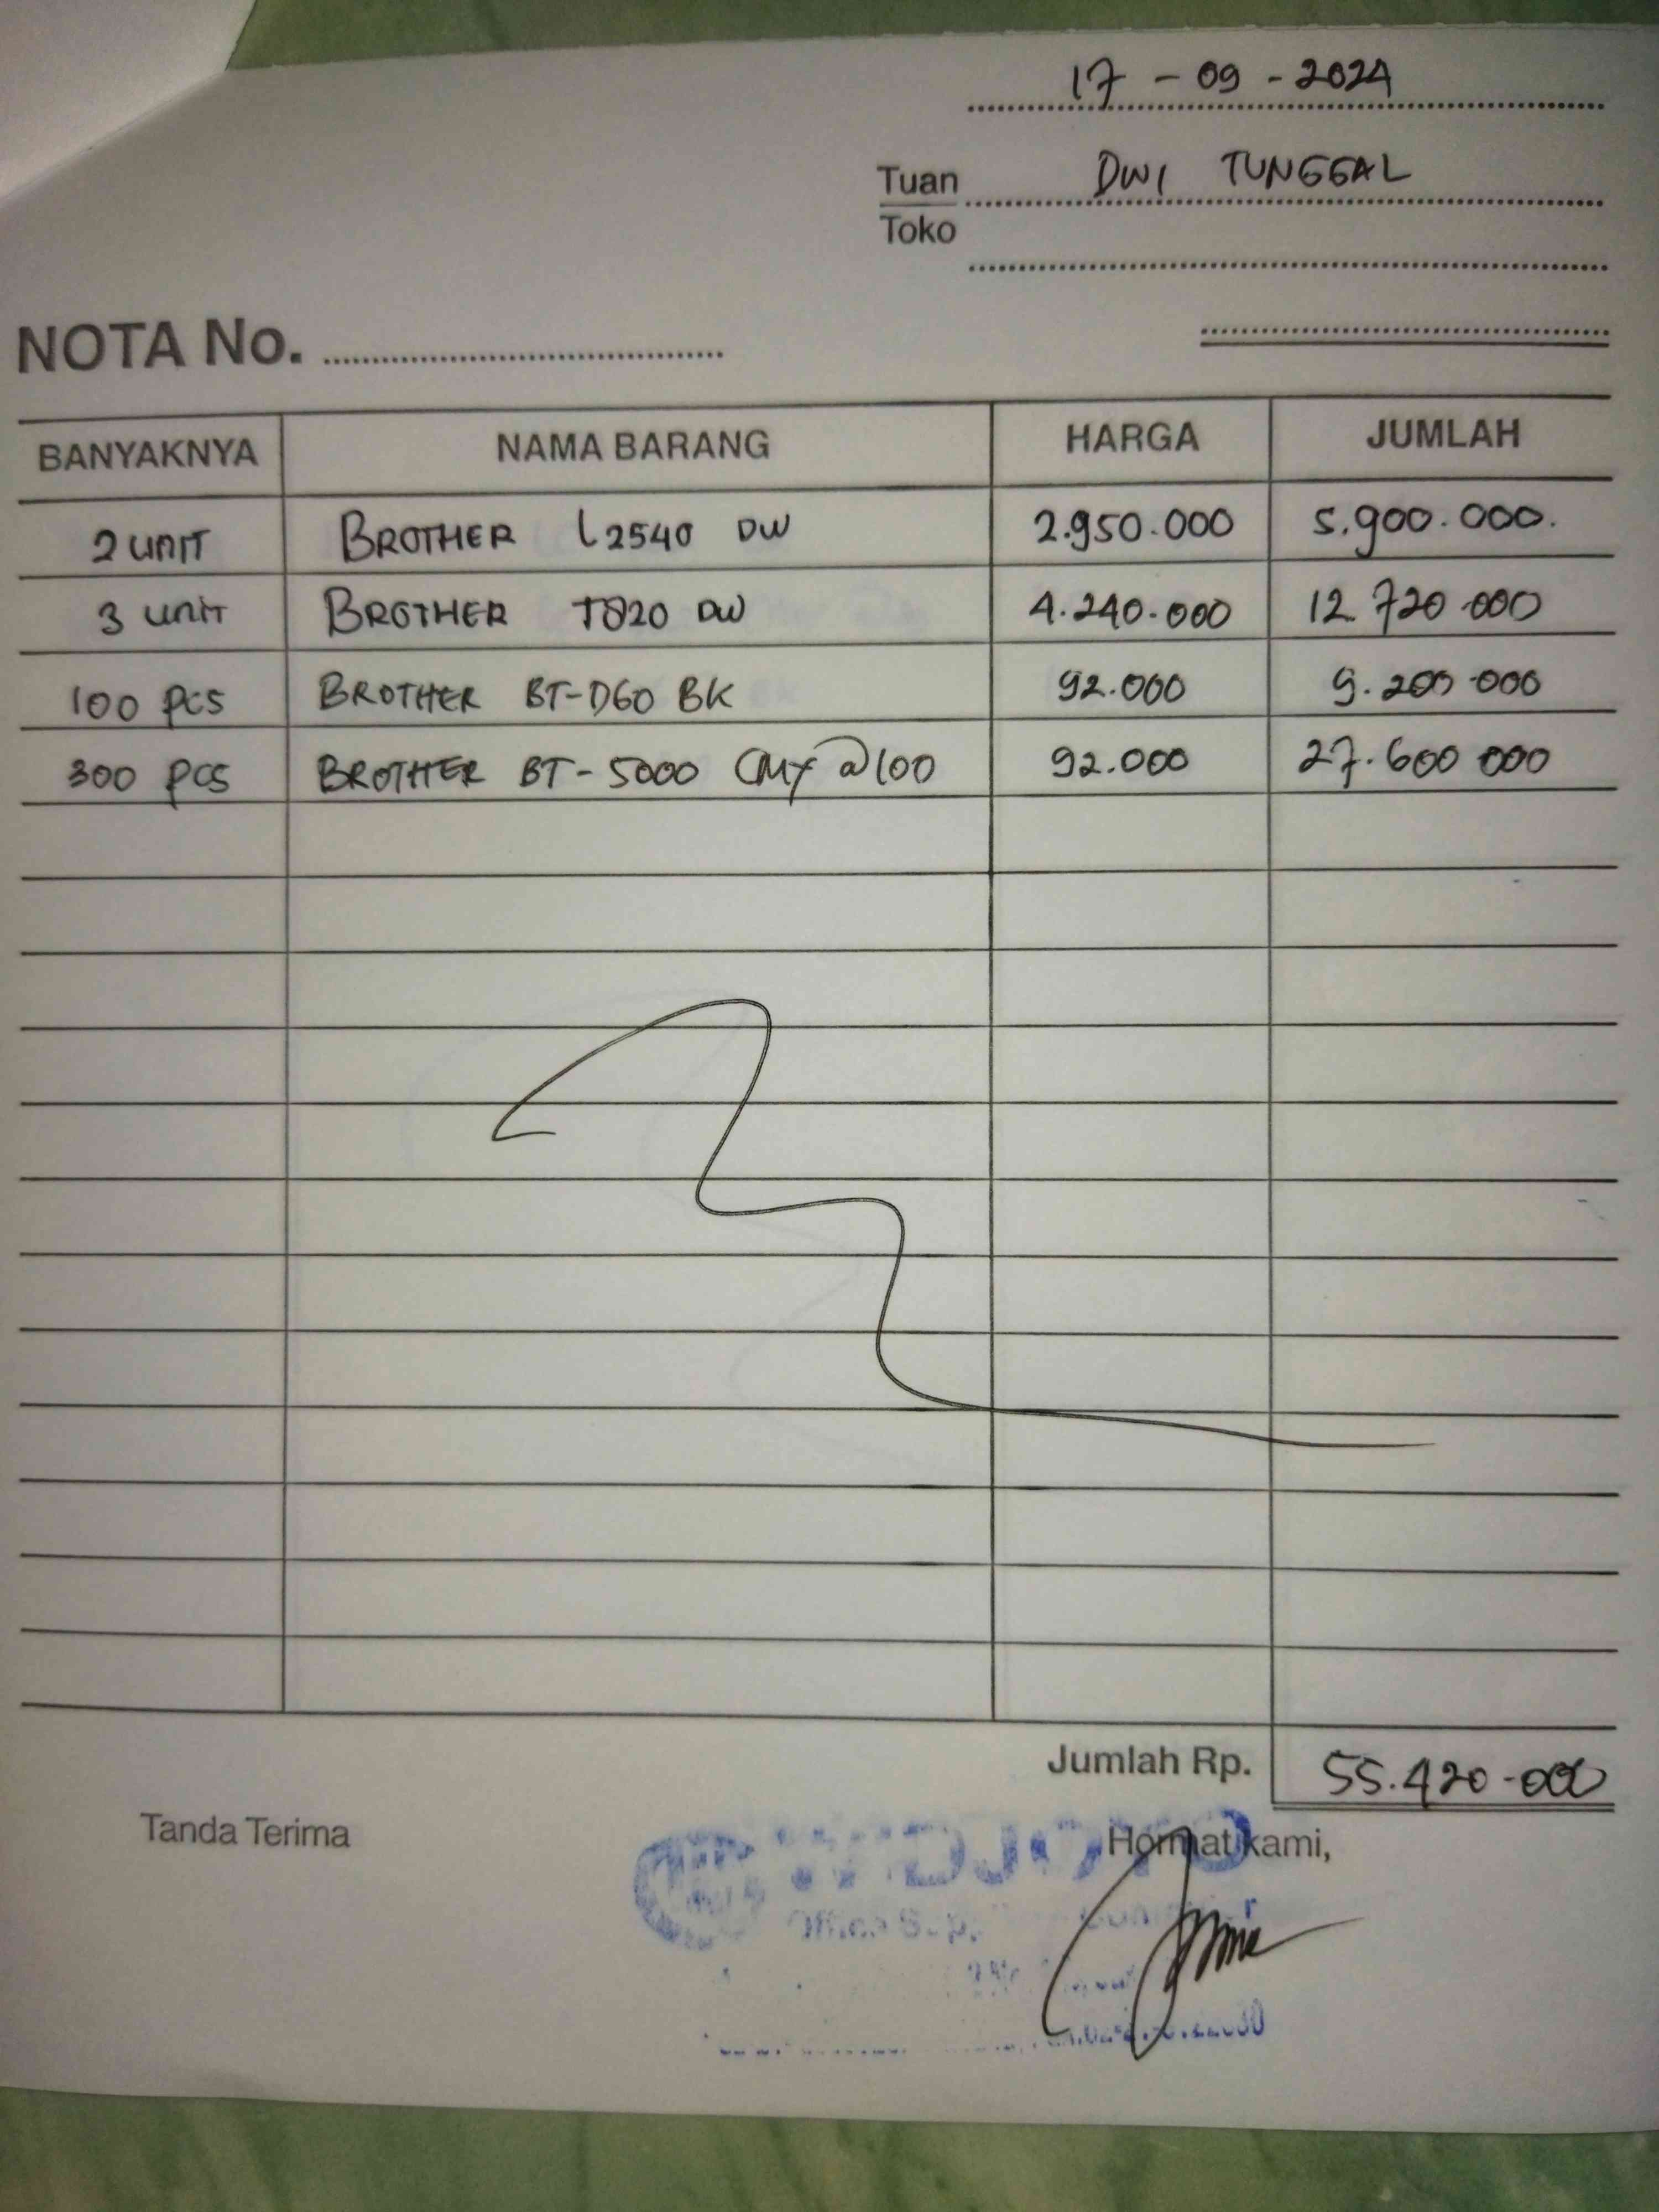 17 - 09 - 2024
Tuan DWI TUNGGAL
Toko
NOTA No.
BANYAKNYA NAMA BARANG HARGA JUMLAH
2 UNIT BROTHER L2540 DW 2.950.000 5.900.000.
3 UNIT BROTHER T820 DW 4.240.000 12 720 000
100 PCS BROTHER BT-D60 BK 92.000 9.200 000
300 PCS BROTHER BT-5000 CMY @100 92.000 27.600 000
Jumlah Rp. 55.420.000
Tanda Terima Hormat kami,